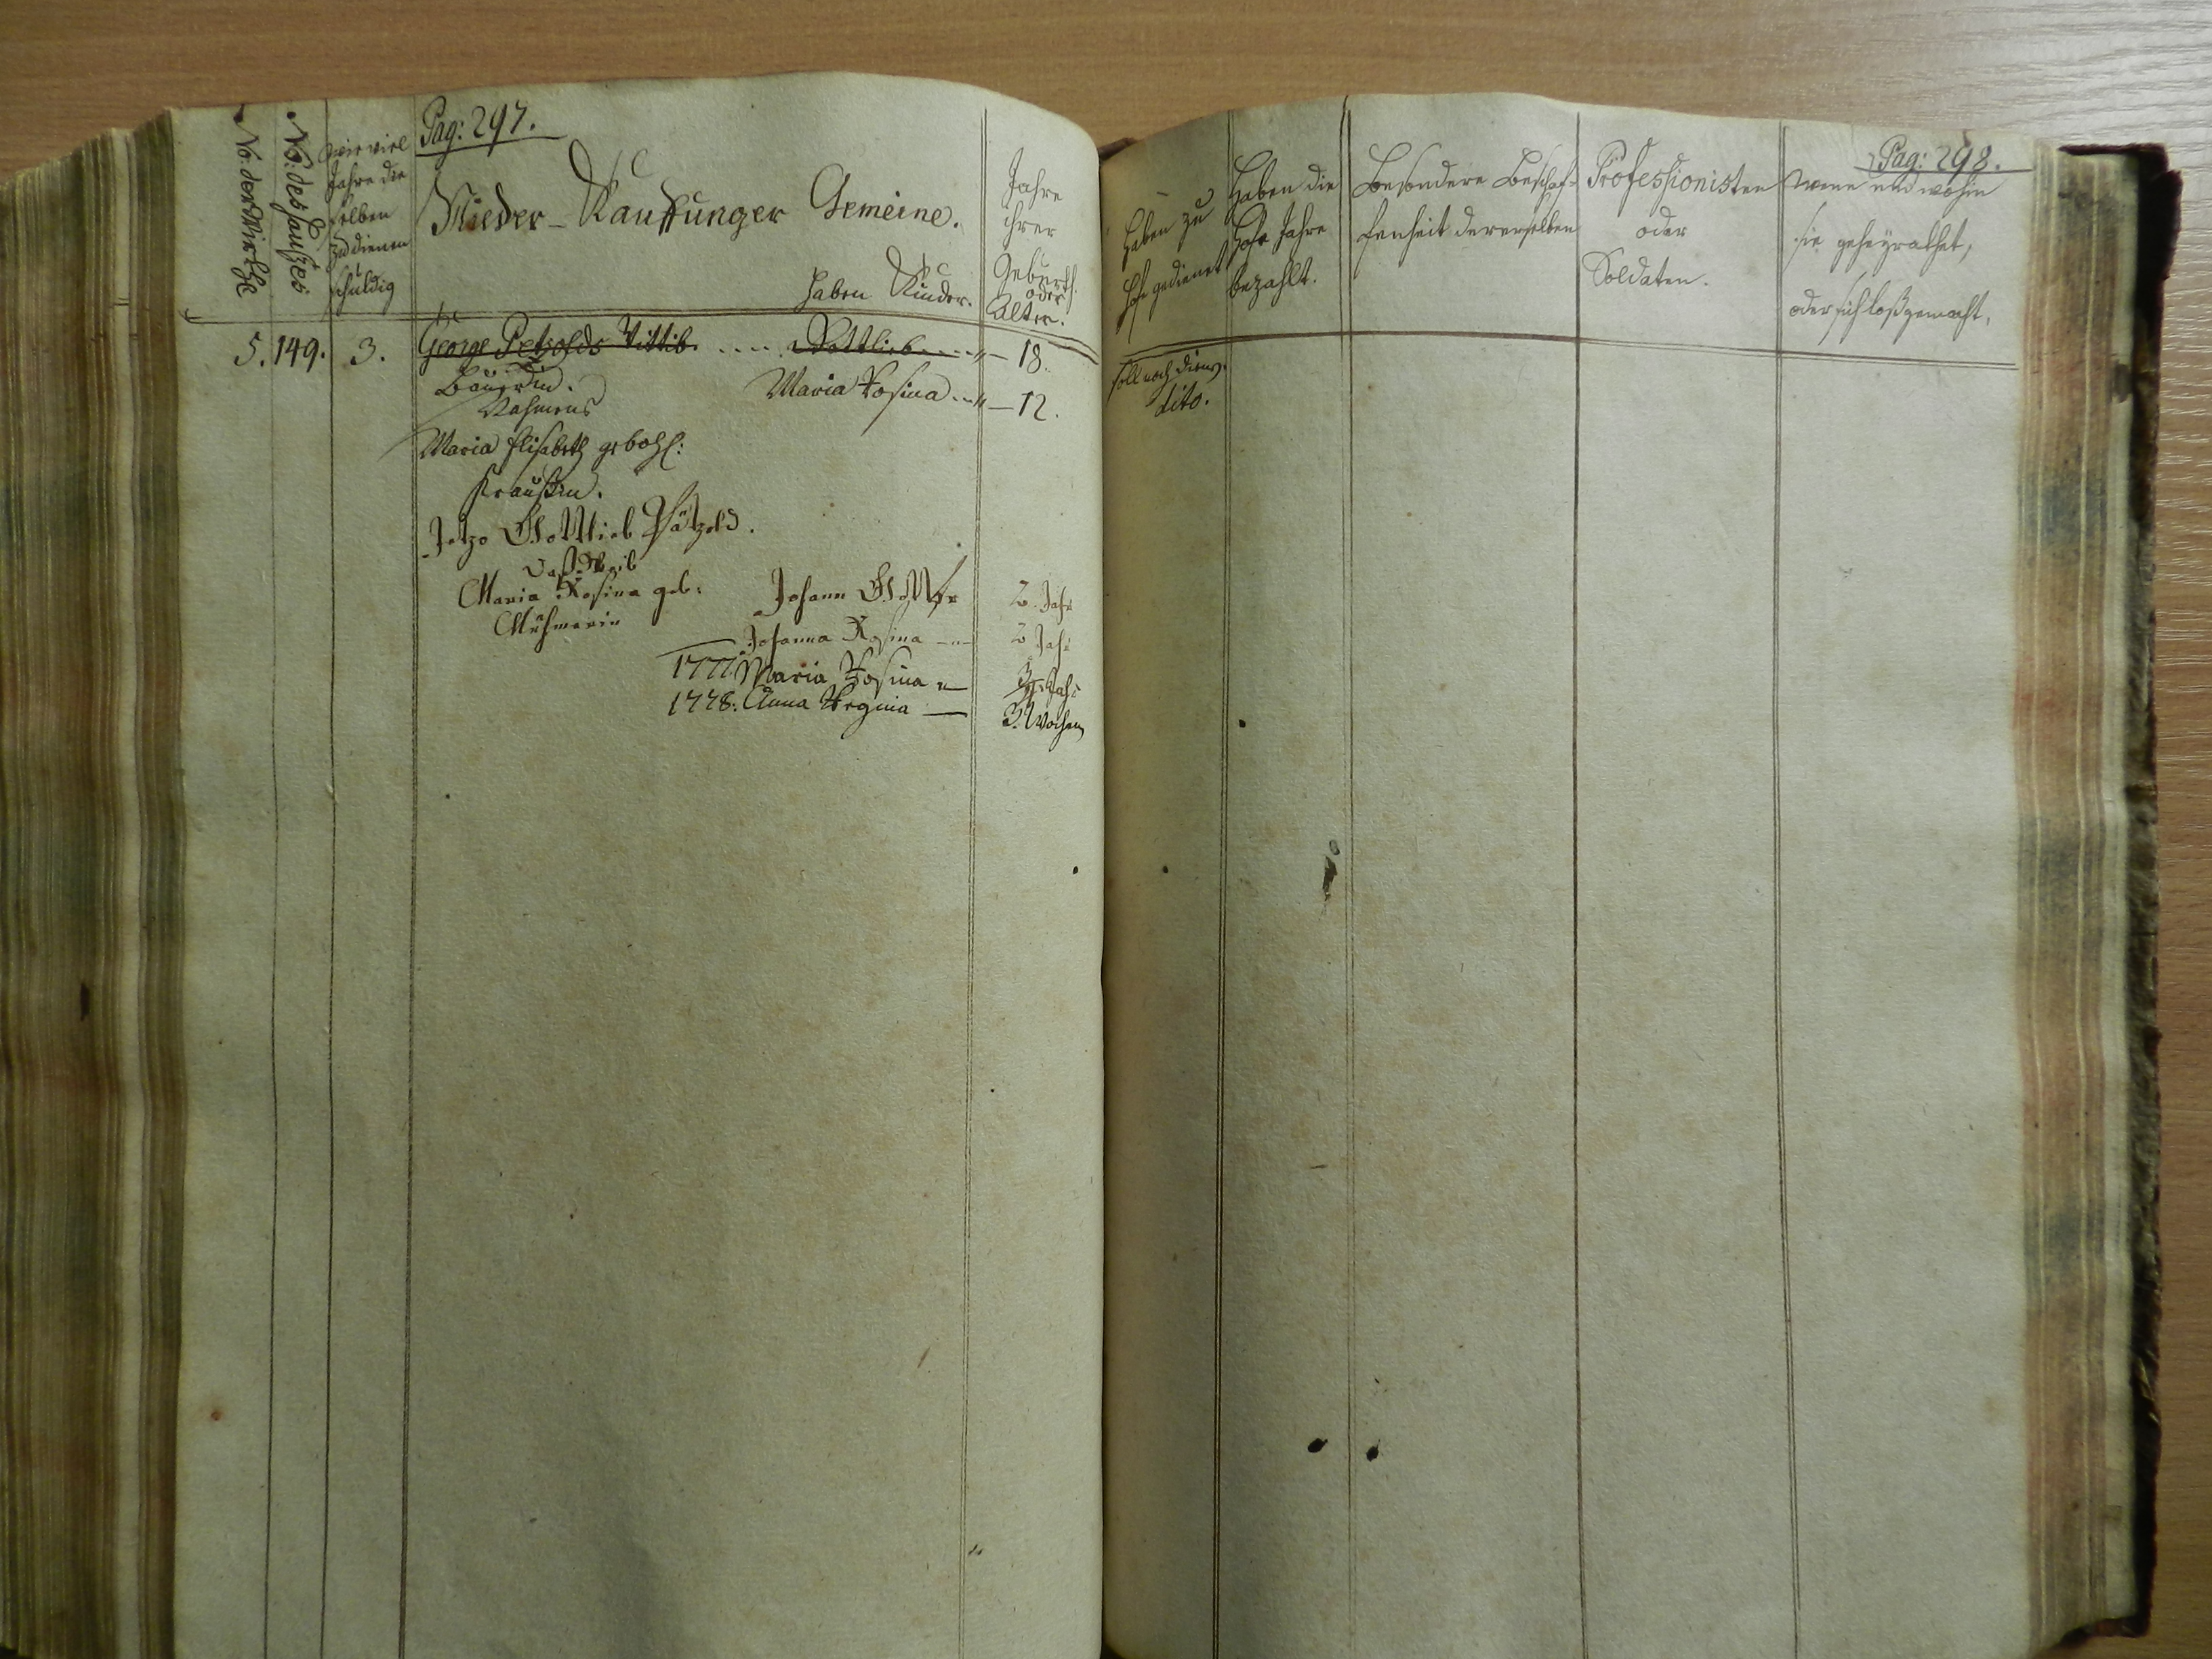 Pag: 297.
No. der Wirthe
No: des Haußes
wie viel
Jahre die
selben
zu dienen
schuldig
Nieder-Kauffunger Gemeine.
haben Kinder.
Jahre
ihrer
Geburth.
oder
Alter.
5. 149. 3. George Petzolds Wittib. .... Gottlieb .... " — 18.
Bäuerin. Maria Rosina ... " — 12.
Nahmens
Maria Elisabeth gebohr:
Kraußin.
Jetzo Gottlieb Pätzold.
Das Weib
Maria Rosina geb: Johann Gottfr 2. Jahr
Johanna Rosina — " — 2 Jahr
1777. Maria Rosina " — Jahr
1778. Anna Regina — 3. Wochen
Pag: 298.
Haben zu
Hofe gedienet
Haben die
Hofe Jahre
bezahlt.
Besondere Beschaf-
fenheit dererselben
Professionisten
oder
Soldaten.
wenn und wohin
sie geheyrathet,
oder sich loßgemacht.
soll noch dienen.
dito.